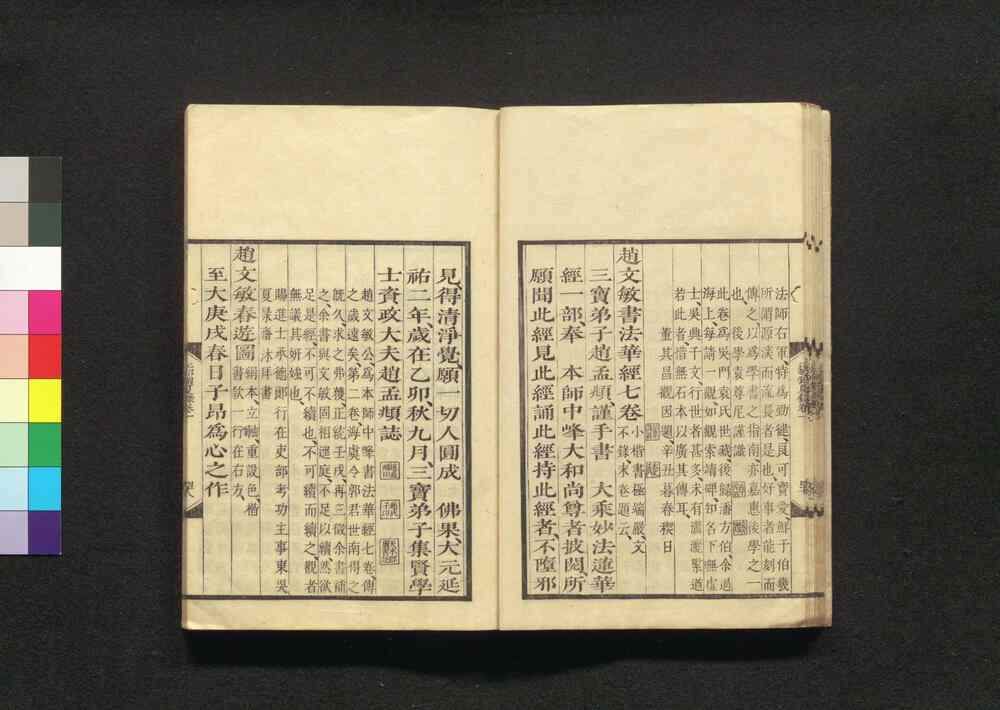 法師右軍、特爲勁健、良可寶愛、鮮于伯幾
所謂源深而流長者是也、好事者能刻而
傳之、以爲學書之指南、亦嘉惠後學之一
也、後學袁尊尼謹識
此卷爲吳門袁氏世藏、後歸潘方伯、余過
海上、每請一觀、如觀索靖碑、知名下無虛
士、吳興千文、行世者甚多、未有瀟灑緊遒
若此者、惜無石本以廣其傳耳、
董其昌觀因題、辛丑暮春禊日
趙文敏書法華經七卷小楷書、極端嚴、文
不錄、末卷題云、
三寶弟子趙孟頫謹手書　大乘妙法蓮華
經一部、奉　本師中峰大和尚尊者披閱、所
願聞此經見此經誦此經持此經者、不墮邪
見、得清淨覺、願一切人圓成　佛果、大元延
祐二年、歲在乙卯、秋九月、三寶弟子集賢學
士資政大夫趙孟頫誌
趙文敏公爲本師中峰書法華經七卷、傳
之歲遠矣、第二卷、海虞令郭君世南得之
既久、求之弗獲、正統壬戌、再三徵余書補
之、余書與文敏固相逕庭、不足以續、然欲
足是經、不可不續也、不可續而續之、觀者
無議其妍媸也、
賜進士承德郎行在吏部考功主事東吳
夏㫤齋沐拜書
趙文敏春遊圖絹本、立軸、重設色、楷
書款一行在右方、
至大庚戌春日子昂爲心之作